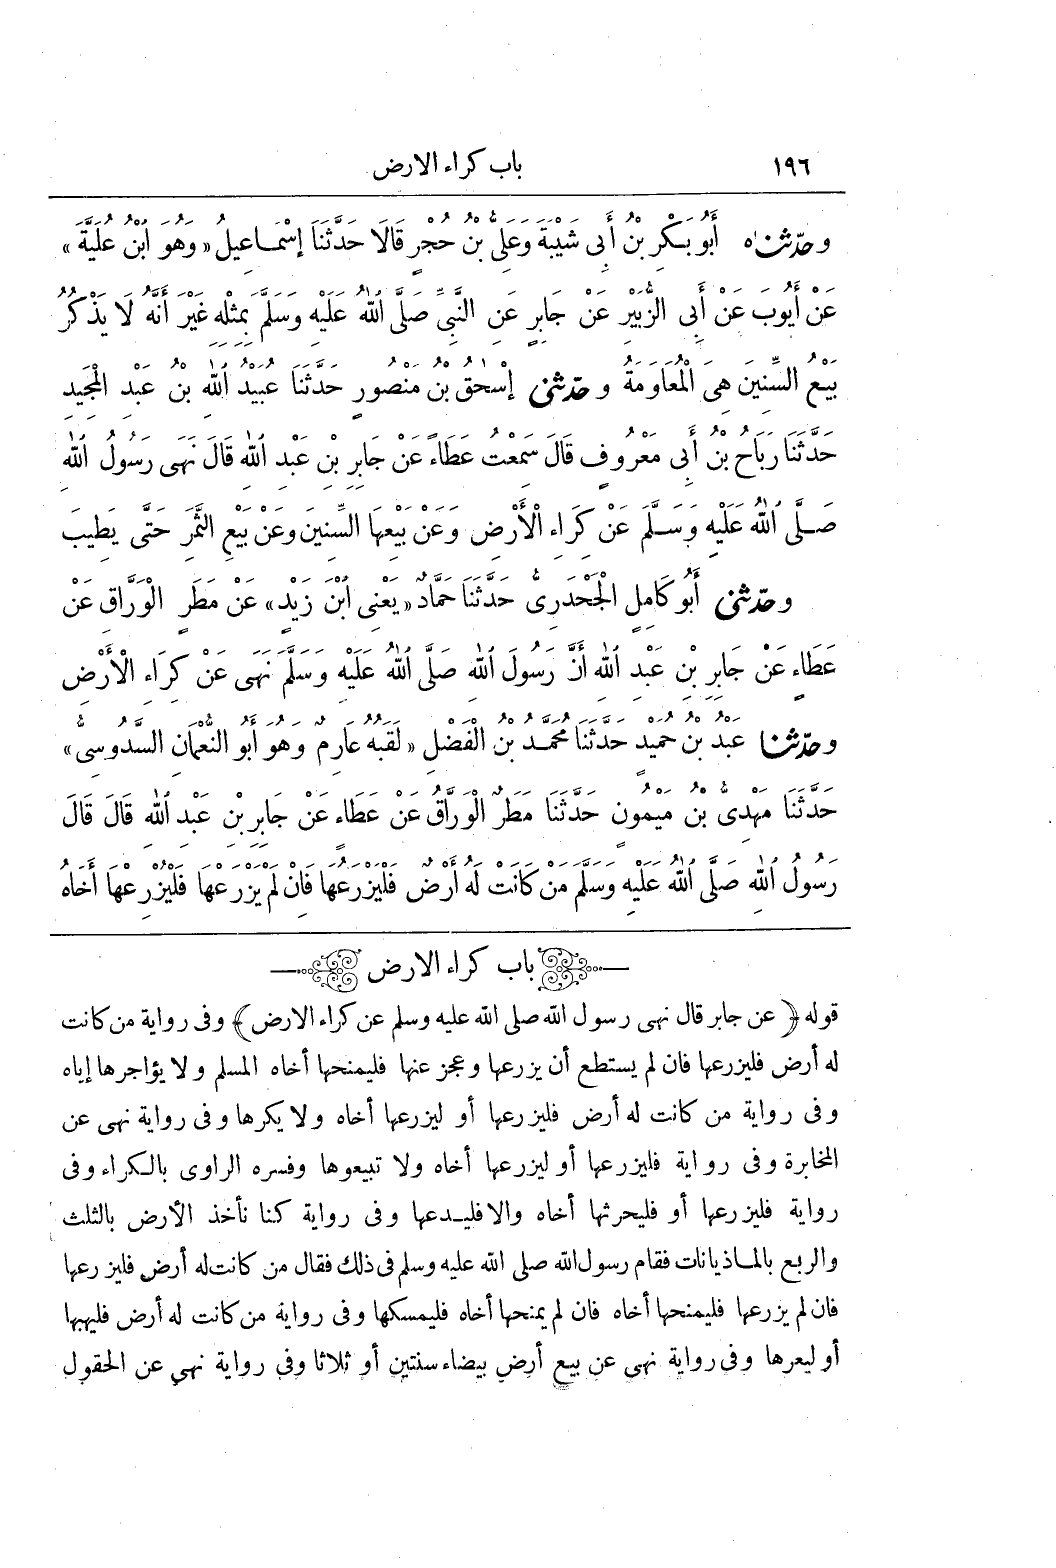 ١٩٦ باب كراء الارض
وحَدَّثَنَاه أَبُو بَكْرِ بْنُ أَبِى شَيْبَةَ وَعَلِىُّ بْنُ حُجْرٍ قَالَا حَدَّثَنَا إِسْمَاعِيلُ «وَهُوَ ابْنُ عُلَيَّةَ»
عَنْ أَيُّوبَ عَنْ أَبِى الزُّبَيْرِ عَنْ جَابِرٍ عَنِ النَّبِىِّ صَلَّى اللهُ عَلَيْهِ وَسَلَّمَ بِمِثْلِهِ غَيْرَ أَنَّهُ لَا يَذْكُرُ
بَيْعُ السِّنِينَ هِىَ الْمُعَاوَمَةُ وحَدَّثَنِى إِسْحٰقُ بْنُ مَنْصُورٍ حَدَّثَنَا عُبَيْدُ اللهِ بْنُ عَبْدِ الْمَجِيدِ
حَدَّثَنَا رَبَاحُ بْنُ أَبِى مَعْرُوفٍ قَالَ سَمِعْتُ عَطَاءً عَنْ جَابِرِ بْنِ عَبْدِ اللهِ قَالَ نَهَى رَسُولُ اللهِ
صَلَّى اللهُ عَلَيْهِ وَسَلَّمَ عَنْ كِرَاءِ الْأَرْضِ وَعَنْ بَيْعِهَا السِّنِينَ وَعَنْ بَيْعِ الثَّمَرِ حَتَّى يَطِيبَ
وحَدَّثَنِى أَبُو كَامِلٍ الْجَحْدَرِىُّ حَدَّثَنَا حَمَّادٌ «يَعْنِى ابْنَ زَيْدٍ» عَنْ مَطَرٍ الْوَرَّاقِ عَنْ
عَطَاءٍ عَنْ جَابِرِ بْنِ عَبْدِ اللهِ أَنَّ رَسُولَ اللهِ صَلَّى اللهُ عَلَيْهِ وَسَلَّمَ نَهَى عَنْ كِرَاءِ الْأَرْضِ
وحَدَّثَنَا عَبْدُ بْنُ حُمَيْدٍ حَدَّثَنَا مُحَمَّدُ بْنُ الْفَضْلِ «لَقَبُهُ عَارِمٌ وَهُوَ أَبُو النُّعْمَانِ السَّدُوسِىُّ»
حَدَّثَنَا مَهْدِىُّ بْنُ مَيْمُونٍ حَدَّثَنَا مَطَرٌ الْوَرَّاقُ عَنْ عَطَاءٍ عَنْ جَابِرِ بْنِ عَبْدِ اللهِ قَالَ قَالَ
رَسُولُ اللهِ صَلَّى اللهُ عَلَيْهِ وَسَلَّمَ مَنْ كَانَتْ لَهُ أَرْضٌ فَلْيَزْرَعْهَا فَإِنْ لَمْ يَزْرَعْهَا فَلْيُزْرِعْهَا أَخَاهُ
باب كراء الارض
قوله ﴿عن جابر قال نهى رسول الله صلى الله عليه وسلم عن كراء الارض﴾ وفى رواية من كانت
له أرض فليزرعها فان لم يستطع أن يزرعها وعجز عنها فليمنحها أخاه المسلم ولا يؤاجرها إياه
وفى رواية من كانت له أرض فليزرعها أو ليزرعها أخاه ولا يكرها وفى رواية نهى عن
المخابرة وفى رواية فليزرعها أو ليزرعها أخاه ولا تبيعوها وفسره الراوى بالكراء وفى
رواية فليزرعها أو فليحرثها أخاه والا فليدعها وفى رواية كنا نأخذ الأرض بالثلث
والربع بالماذيانات فقام رسول الله صلى الله عليه وسلم فى ذلك فقال من كانت له أرض فليزرعها
فان لم يزرعها فليمنحها أخاه فان لم يمنحها أخاه فليمسكها وفى رواية من كانت له أرض فليهبها
أو ليعرها وفى رواية نهى عن بيع أرض بيضاء سنتين أو ثلاثا وفى رواية نهى عن الحقول